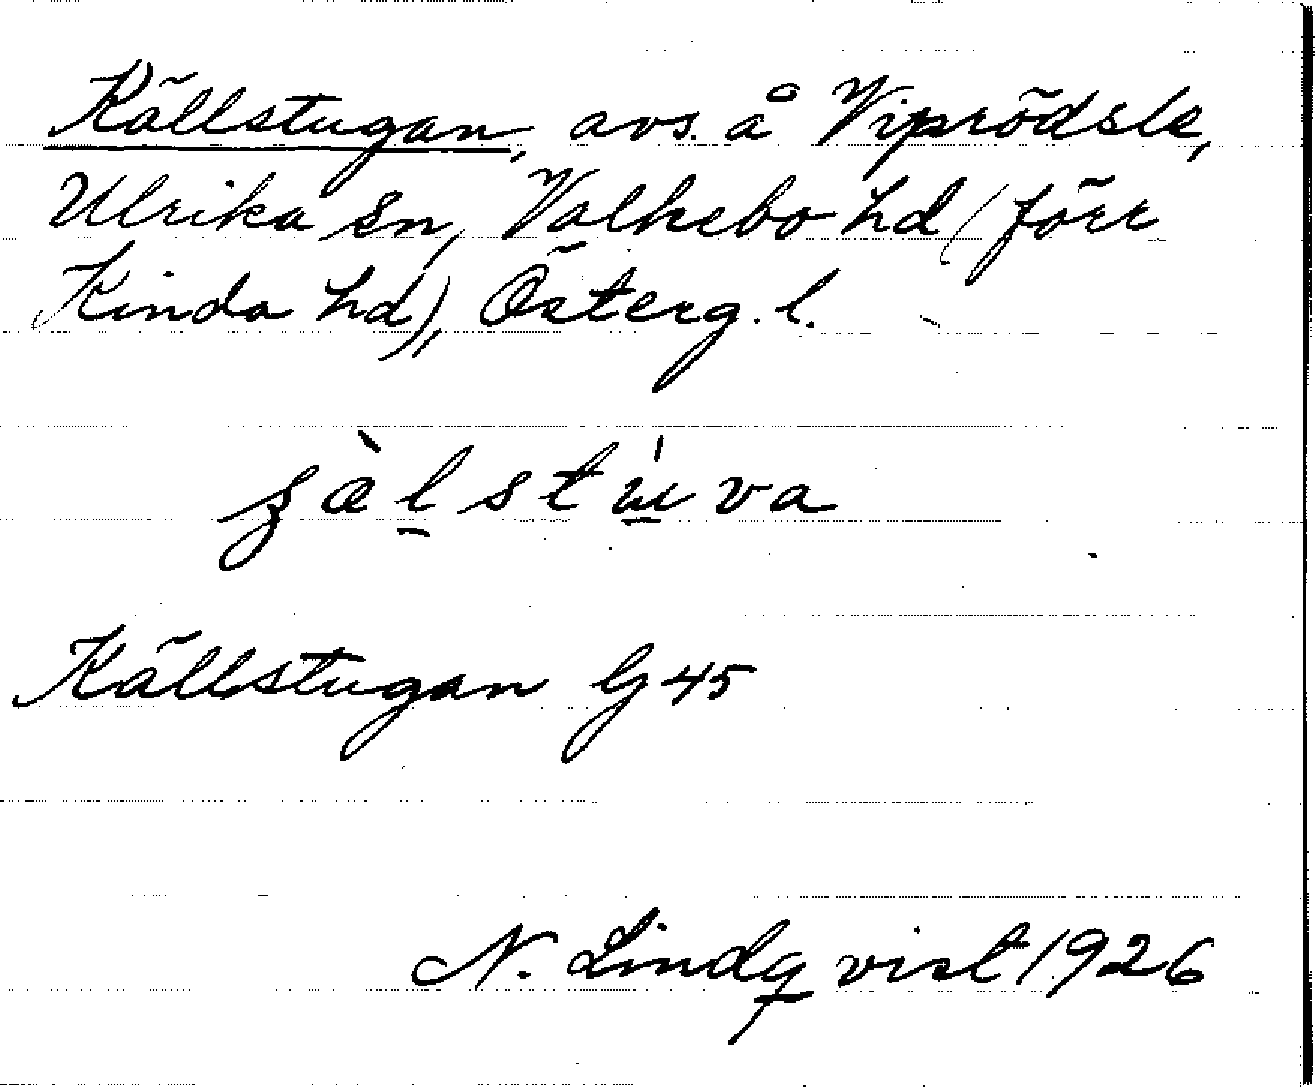 Källstugan, avs. å Viprödsle,
Ulrika sn, Valkebo hd (förr
Kinda hd), Österg. l.
Källstugan G 45
N. Lindqvist 1926